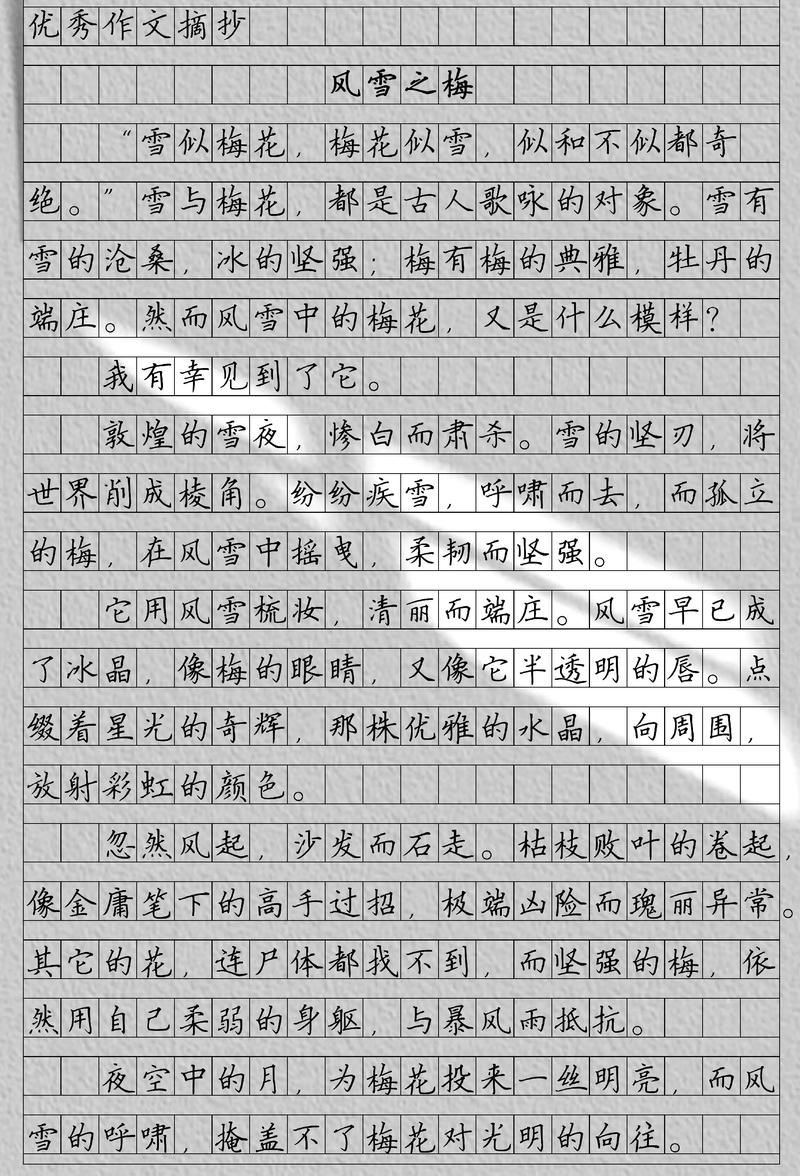 优秀作文摘抄
风雪之梅
“雪似梅花，梅花似雪，似和不似都奇
绝。”雪与梅花，都是古人歌咏的对象。雪有
雪的沧桑，冰的坚强；梅有梅的典雅，牡丹的
端庄。然而风雪中的梅花，又是什么模样？
我有幸见到了它。
敦煌的雪夜，惨白而肃杀。雪的坚刃，将
世界削成棱角。纷纷疾雪，呼啸而去，而孤立
的梅，在风雪中摇曳，柔韧而坚强。
它用风雪梳妆，清丽而端庄。风雪早已成
了冰晶，像梅的眼睛，又像它半透明的唇。点
缀着星光的奇辉，那株优雅的水晶，向周围，
放射彩虹的颜色。
忽然风起，沙发而石走。枯枝败叶的卷起，
像金庸笔下的高手过招，极端凶险而瑰丽异常。
其它的花，连尸体都找不到，而坚强的梅，依
然用自己柔弱的身躯，与暴风雨抵抗。
夜空中的月，为梅花投来一丝明亮，而风
雪的呼啸，掩盖不了梅花对光明的向往。